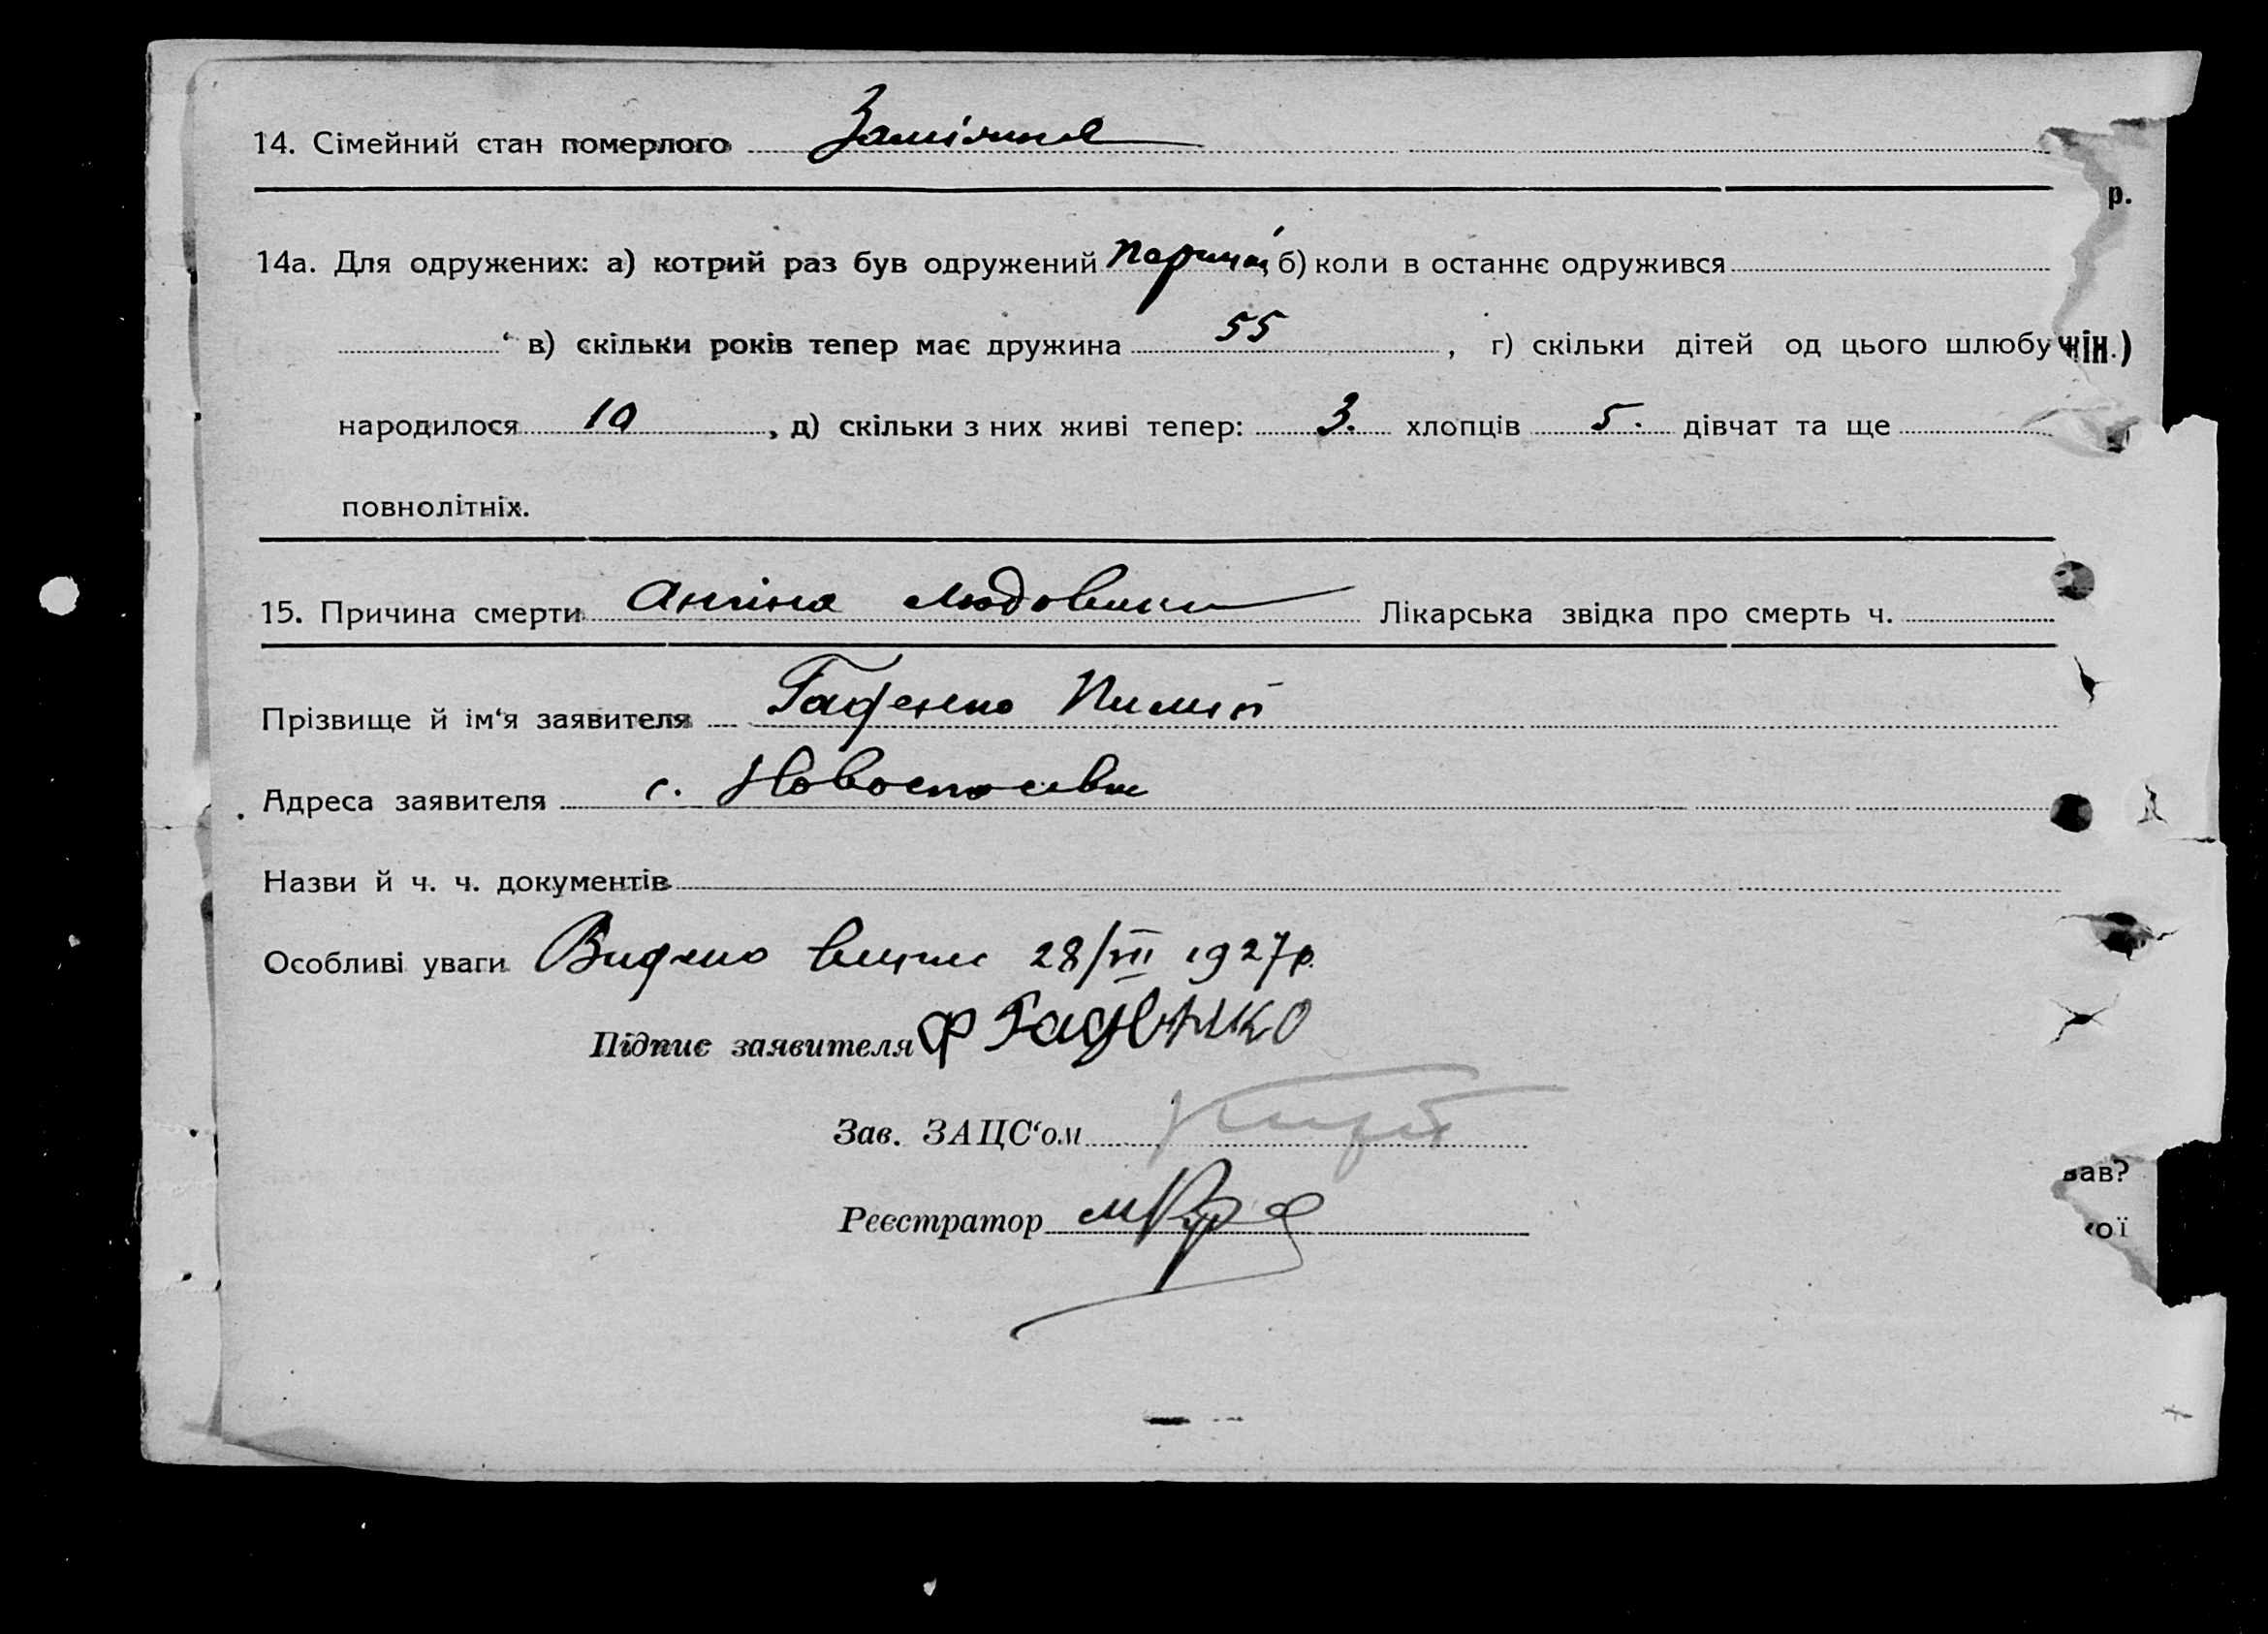 р.
14. Сімейний стан померлого Заміжня
14а. Для одружених: а) котрий раз був одружений б) коли в останнє одружився
в) скільки років тепер має дружина 55, г) скільки дітей од цього шлюбу жін.)
народилося 10, д) скільки з них живі тепер: 3. хлопців 5. дівчат та ще
повнолітніх.
15. Причина смерти Лікарська звідка про смерть ч.
Прізвище й ім‘я заявителя Гаденко
Адреса заявителя с. Новоспасівка
Назви й ч. ч. документів
Особливі уваги Видано 28/VII 1927 р.
Підпис заявителя Ф Гаденко
Зав. ЗАЦС‘ом
Реєстратор
вав?
кої